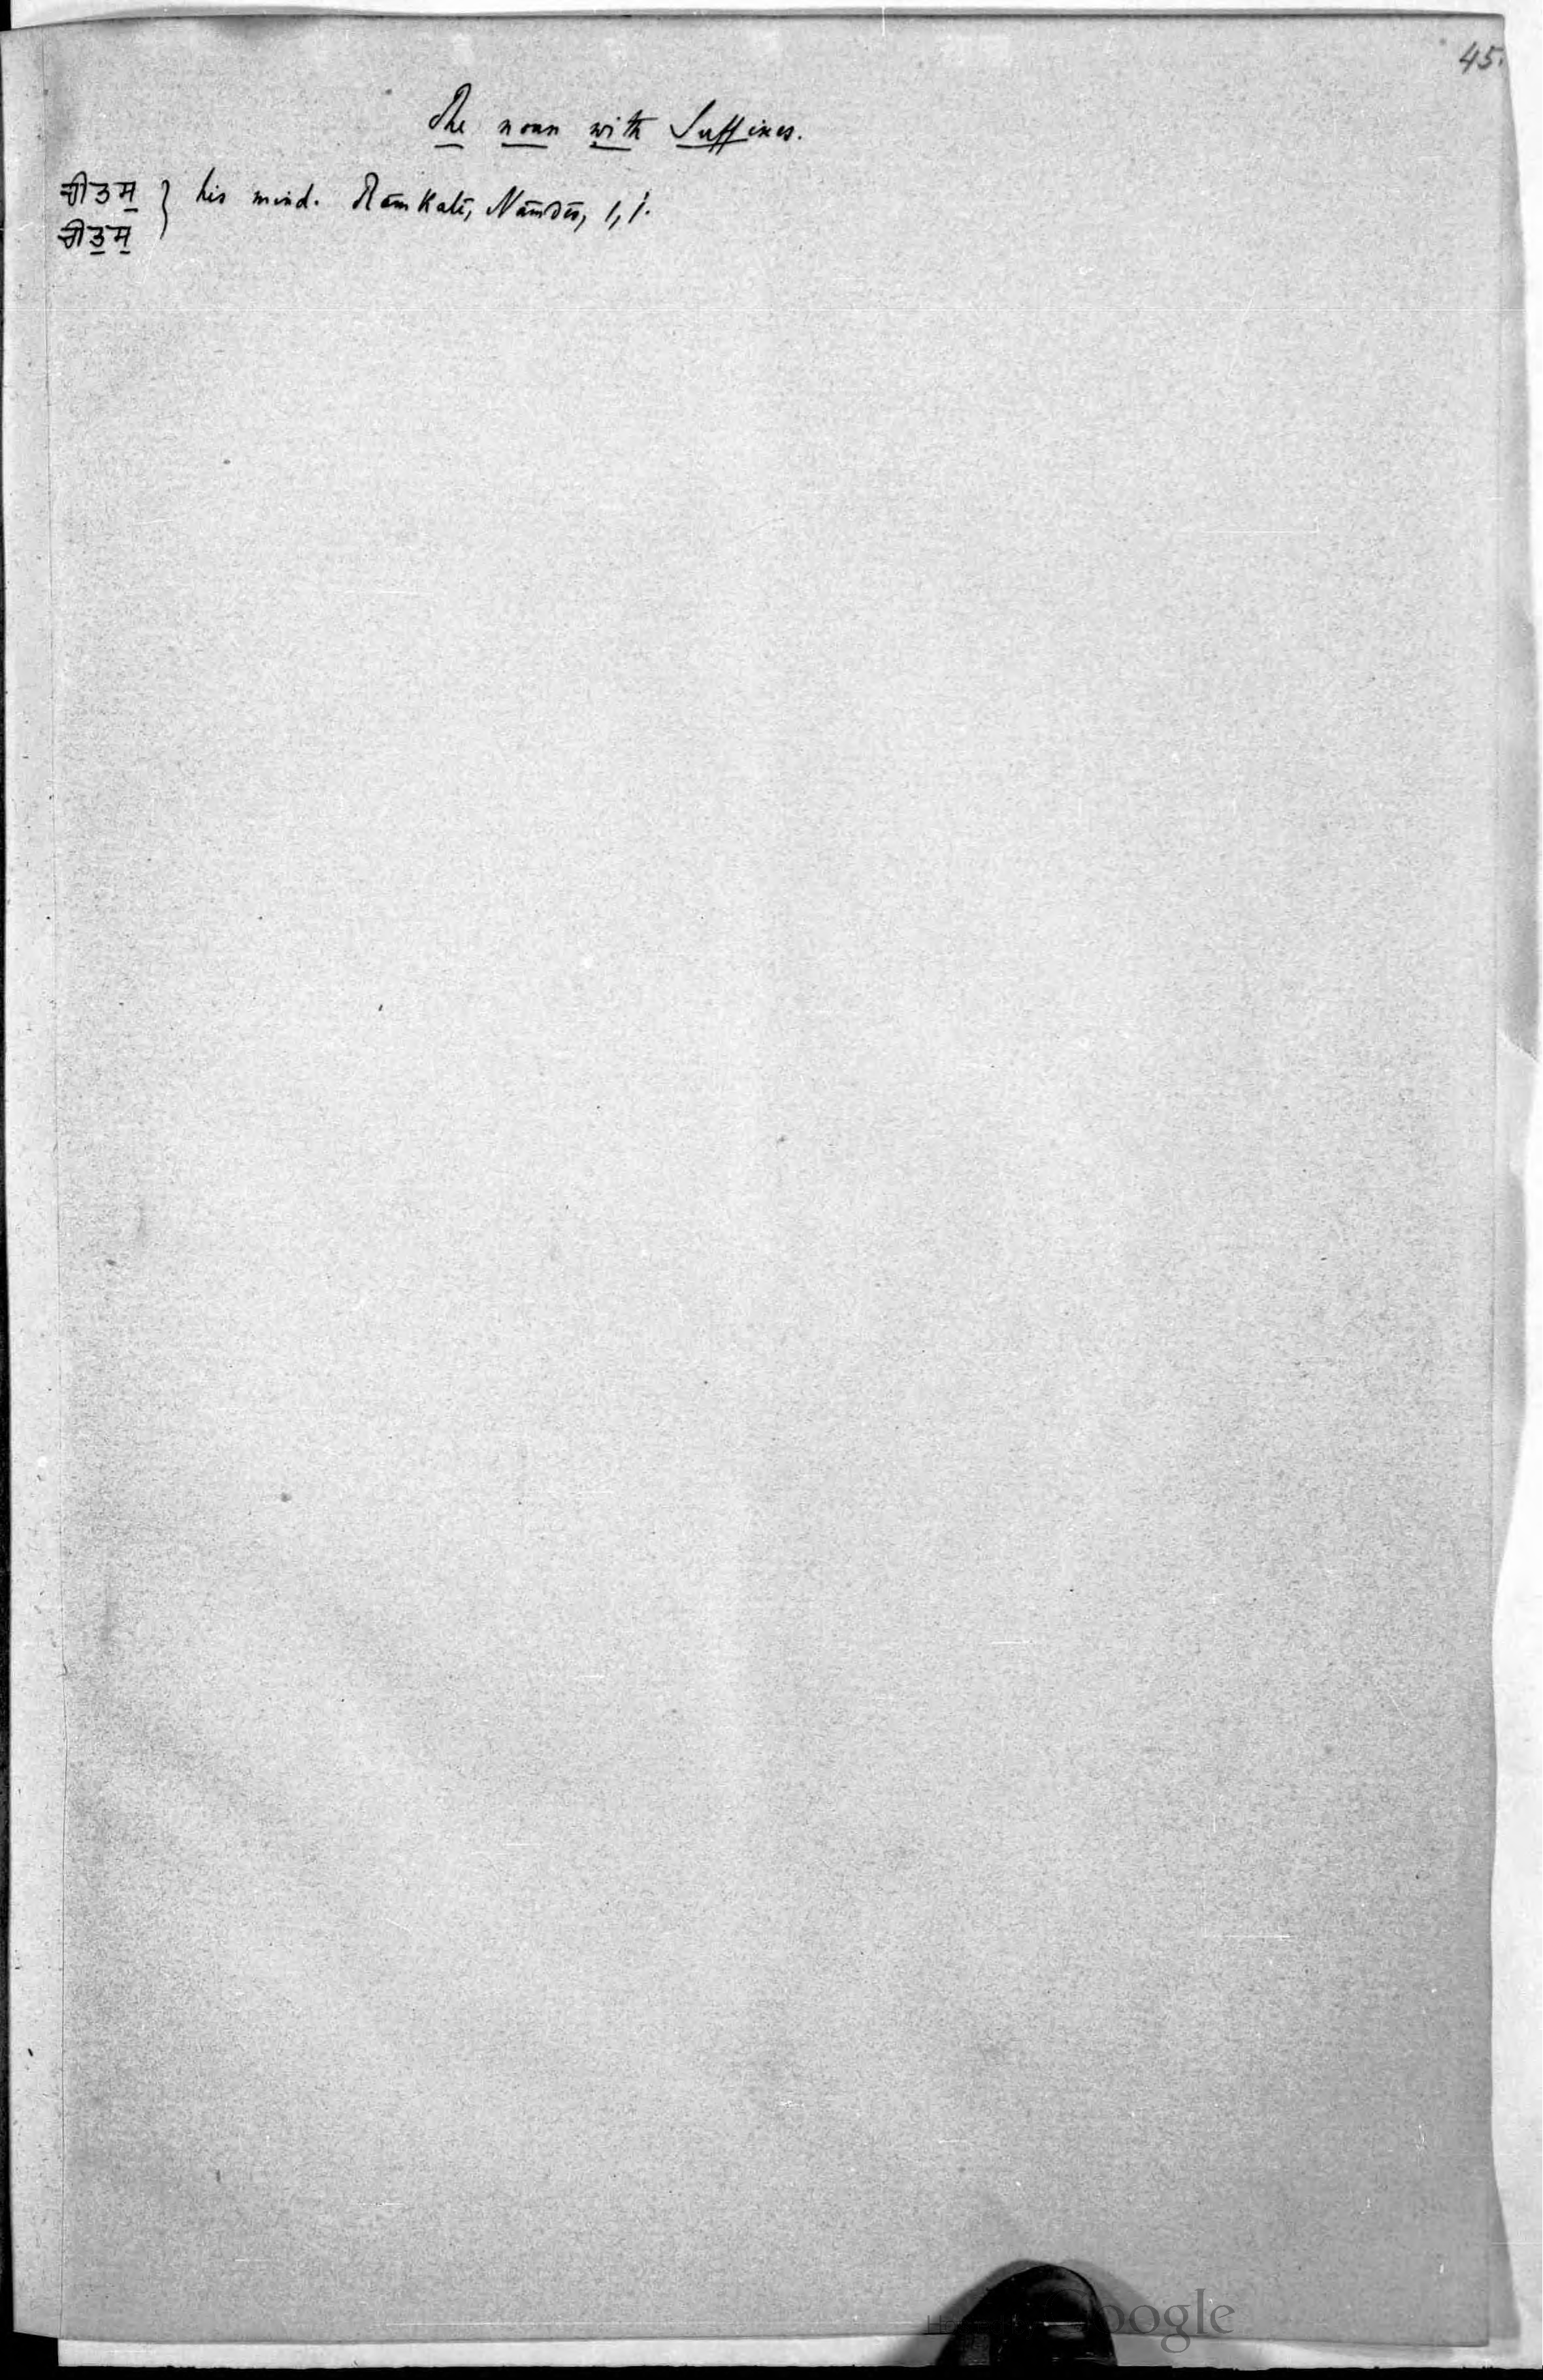 45.
The noun with Suffixes.
ਚੀਤਸੁ } his mind. Rāmkalī, Nāmdēv, 1,1.
ਚੀਤੁਸੁ
Google